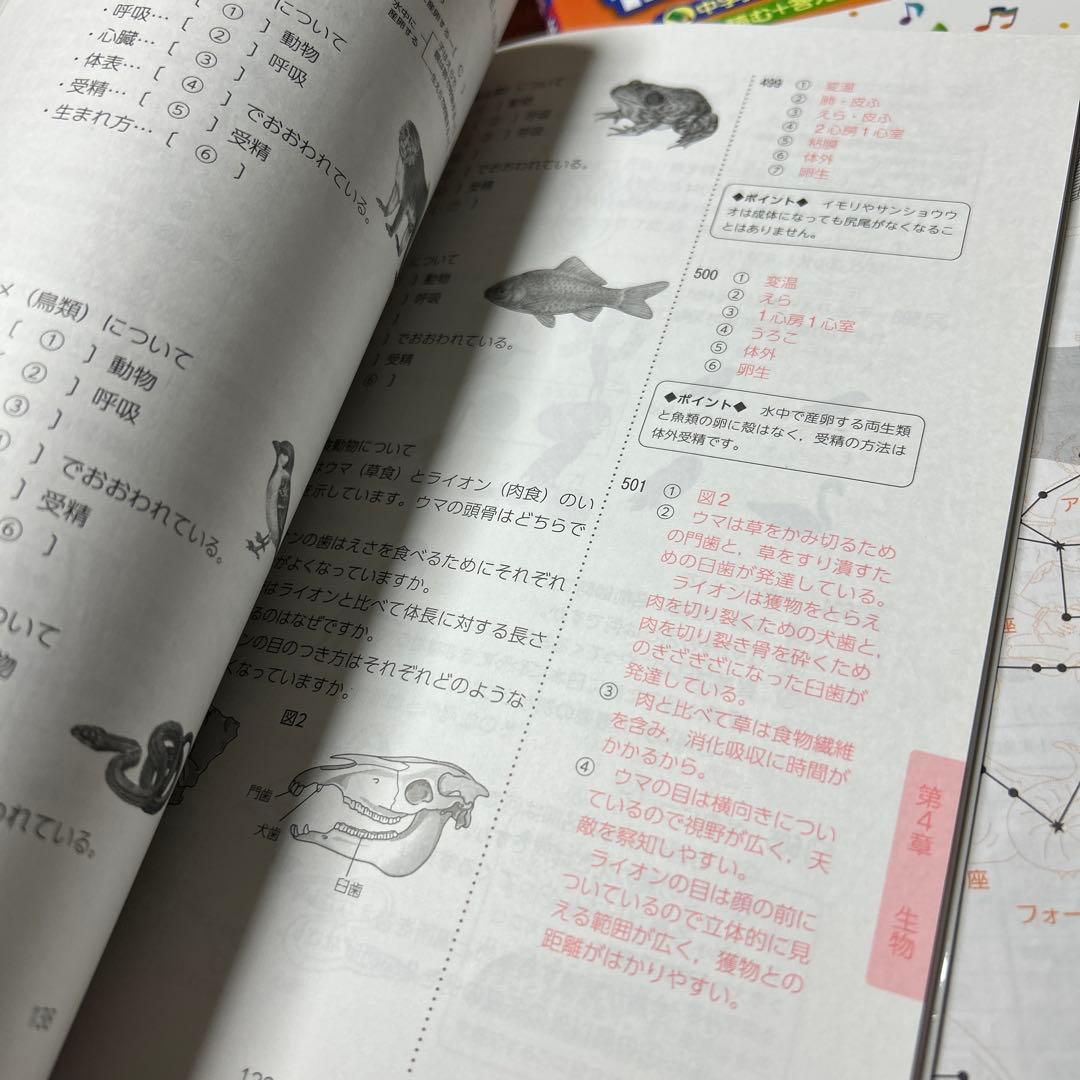 について
・呼吸… [ ① ] 動物
・心臓… [ ② ] 呼吸
・体表… [ ③ ]
・受精… [ ④ ] でおおわれている。
・生まれ方… [ ⑤ ] 受精
[ ⑥ ]
水中に
産卵する
（鳥類）について
[ ① ] 動物
② ] 呼吸
③ ]
] でおおわれている。
] 受精
⑥ ]
ついて
われている。
中学
] でおおわれている。
] 受精
について
] 動物
] 呼吸
]
] でおおわれている。
] 受精
⑥ ]
動物について
はウマ（草食）とライオン（肉食）のい
を示しています。ウマの頭骨はどちらで
ンの歯はえさを食べるためにそれぞれ
がよくなっていますか。
はライオンと比べて体長に対する長さ
るのはなぜですか。
ンの目のつき方はそれぞれどのような
くなっていますか。
図2
門歯
犬歯
臼歯
499 ① 変温
② 肺・皮ふ
③ えら・皮ふ
④ 2心房1心室
⑤ 粘膜
⑥ 体外
⑦ 卵生
◆ポイント◆ イモリやサンショウウ
オは成体になっても尻尾がなくなるこ
とはありません。
500 ① 変温
② えら
③ 1心房1心室
④ うろこ
⑤ 体外
⑥ 卵生
◆ポイント◆ 水中で産卵する両生類
と魚類の卵に殻はなく，受精の方法は
体外受精です。
501 ① 図2
② ウマは草をかみ切るため
の門歯と，草をすり潰すた
めの臼歯が発達している。
ライオンは獲物をとらえ
肉を切り裂くための犬歯と，
肉を切り裂き骨を砕くため
のぎざぎざになった臼歯が
発達している。
③ 肉と比べて草は食物繊維
を含み，消化吸収に時間が
かかるから。
④ ウマの目は横向きについ
ているので視野が広く，天
敵を察知しやすい。
ライオンの目は顔の前に
ついているので立体的に見
える範囲が広く，獲物との
距離がはかりやすい。
第4章 生物
ア
座
座
フォー